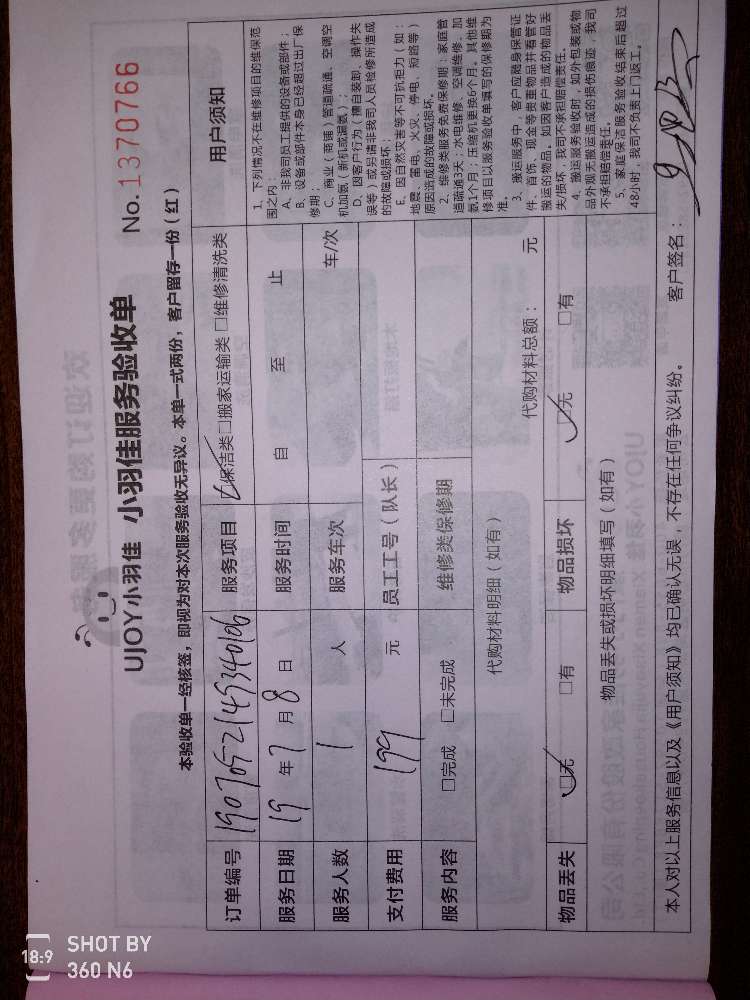 No.1370766
UJOY小羽佳 小羽佳服务验收单
本验收单一经核签，即视为对本次服务验收无异议。本单一式两份，客户留存一份（红）
订单编号 190705214534010b 服务项目 ☑保洁类□搬家运输类 □维修清洗类
服务日期 19 年 7 月 8 日 服务时间 自 至 止
服务人数 1 人 服务车次 车/次
支付费用 199 元 员工工号（队长）
服务内容 □完成 □未完成 维修类保修期
代购材料明细（如有） 代购材料总额： 元
物品丢失 ☑无 □有 物品损坏 ☑无 □有
物品丢失或损坏明细填写（如有）
用户须知
1、下列情况不在维修项目的维保范
围之内：
A、非我司员工提供的设备或部件；
B、设备或部件本身已经超过出厂保
修期；
C、商业（商铺）管道疏通、空调空
机加氨（新机或漏氨）；
D、因客户行为（擅自装卸、操作失
误等）或另请非我司人员检修所造成
的故障或损坏；
E、因自然灾害等不可抗拒力（如：
地震、雷电、火灾、停电、短路等）
原因造成的故障或损坏。
2、维修类服务免费保修期：家庭管
道疏通3天；水电维修、空调维修、加
氨1个月；压缩机更换6个月。其他维
修项目以服务验收单填写的保修期为
准。
3、搬运服务中，客户应随身保管证
件、首饰、现金等贵重物品并看管好
搬运的物品。如因客户造成的物品丢
失/损坏，我司不承担赔偿责任。
4、搬运服务验收时，如外包装或物
品外观无搬运造成的损伤痕迹，我司
不承担赔偿责任。
5、家庭保洁服务验收结束后超过
48小时，我司不负责上门返工。
本人对以上服务信息以及《用户须知》均已确认无误，不存在任何争议纠纷。 客户签名：
18:9 SHOT BY
360 N6